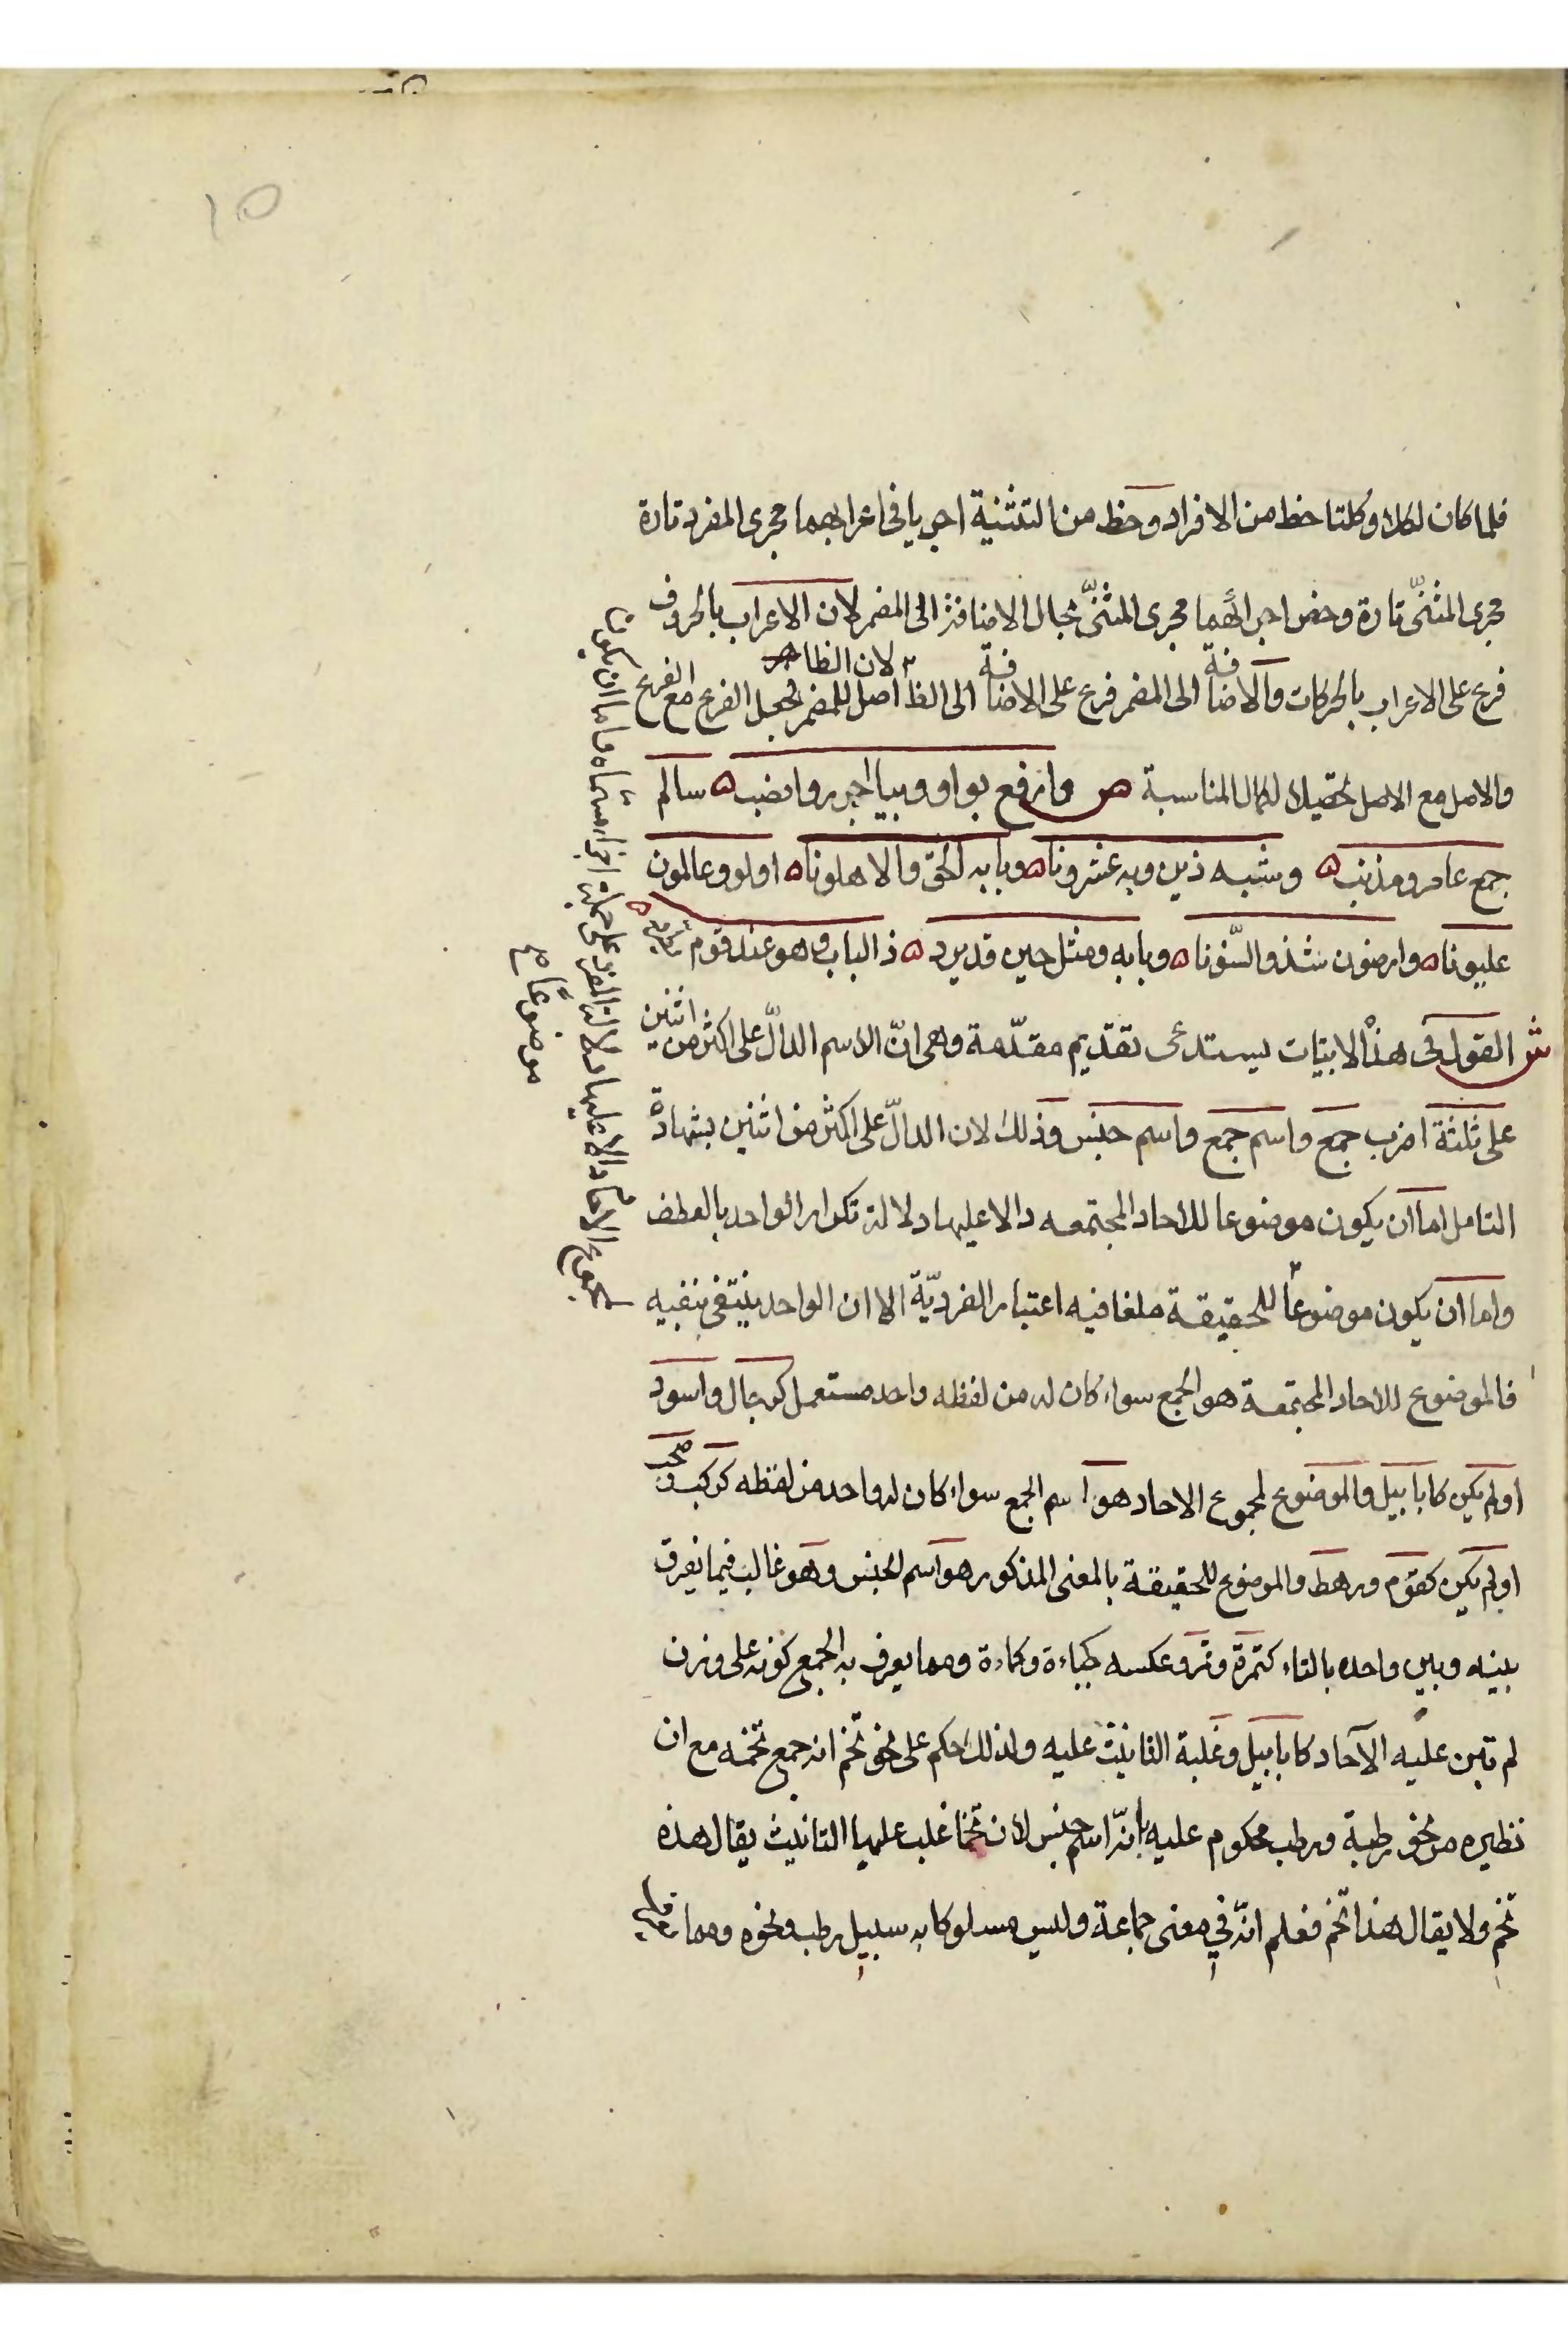 ١٥
فلما كان لكلا وكلتا حظ من الافراد وحظ من التثنية اجريا في اعرابهما مجرى المفرد تارة
مجرى المثنّى تارة وخص اجرائهما مجرى المثنّى بحال الاضافة الى المضمر لان الاعراب بالحروف
فرع على الاعراب بالحركات والاضافة الى المضمر فرع على الاضافة الى الظا لان الظاهر اصل للمضمر لجعل الفرع مع الفرع
والاصل مع الاصل تحصيلا لكمال المناسبة ص وارفع بواو وبيا اجرر وانصب ه سالم
جمع عامر ومذنب ه وشبه ذين وبه عشرونا ه وبابه الحق والاهلونا ه اولو وعالمون
عليونا ه وارضون شذ والسّنونا ه وبابه ومثل حين قد يرد ه ذا الباب وهو عند قوم يطرد ه
ش القول في هذه الابيات يستدعى تقديم مقدّمة وهى انّ الاسم الدالّ على اكثر من اثنين
على ثلثة اضرب جمع واسم جمع واسم جنس وذلك لان الدالّ على اكثر من اثنين بشهادة
التامل اما ان يكون موضوعا للاحاد المجتمعه دالا عليها دلالة تكرار الواحد بالعطف
واما ان يكون موضوعاً للحقيقة ملغا فيه اعتبار الفرديّة الا ان الواحد ينتفى بنفيه
فالموضوع للاحاد المجتمعة هو الجمع سواء كان له من لفظه واحد مستعمل كرجال واسود
او لم يكن كابابيل والموضوع لمجموع الاحاد هو اسم الجمع سواء كان له واحد من لفظه كركب وصحب
او لم يكن كقوم ورهط والموضوع للحقيقة بالمعنى المذكور هو اسم الجنس وهو غالب فيما يفرق
بينه وبين واحده بالتاء كتمرة وتمر وعكسه جباءة وكماءة ومما يعرف به الجمع كونه على وزن
لم تبن عليه الآحاد كابابيل وغلبة التانيث عليه ولذلك حكم على نحو تخم انه جمع تخمه مع ان
نظيره من نحو رطبة ورطب محكوم عليه بانّه اسم جنس لان تخما غلب عليها التانيث يقال هذه
تخم ولا يقال هذا تخم فعلم انّه في معنى جماعة وليس مسلوكا به سبيل رطب ونحوه ومما
لمجموع الاحاد دالا عليها دلالة المفرد على جملة اجزاء مسماه واما ان يكون
موضوعاً صح